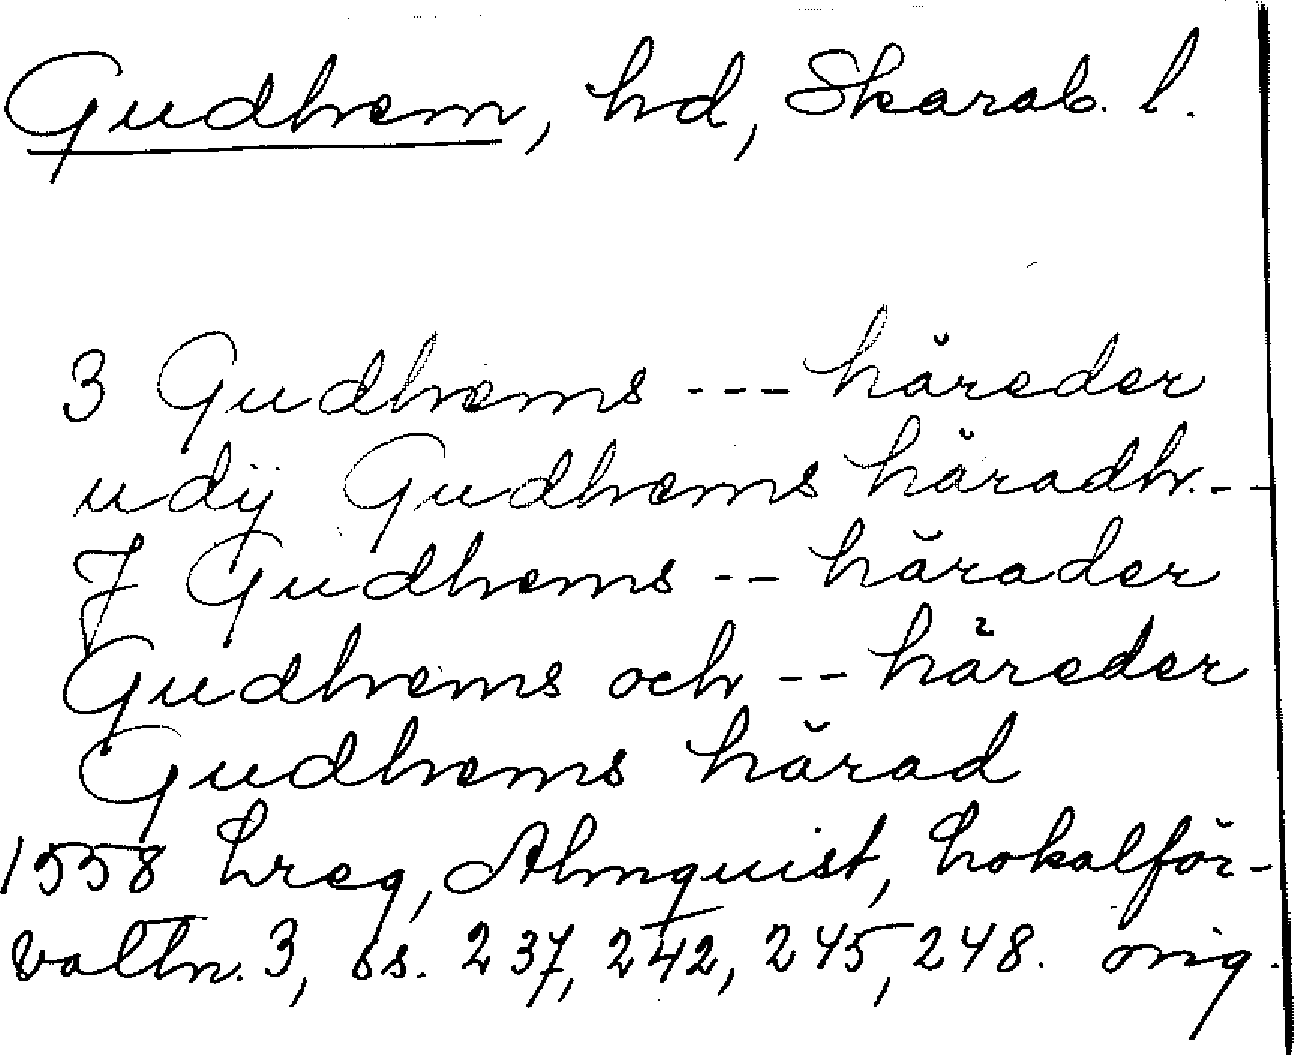 Gudhem, hd, Skarab. l.
3 Gudhems --- häreder
udij Gudhems häradh.--
J Gudhems -- härader
Gudhems och -- häreder
Gudhems härad
1558 Lreg, Almquist, Lokalför-
valtn. 3, ss. 237, 242, 245, 248. orig.